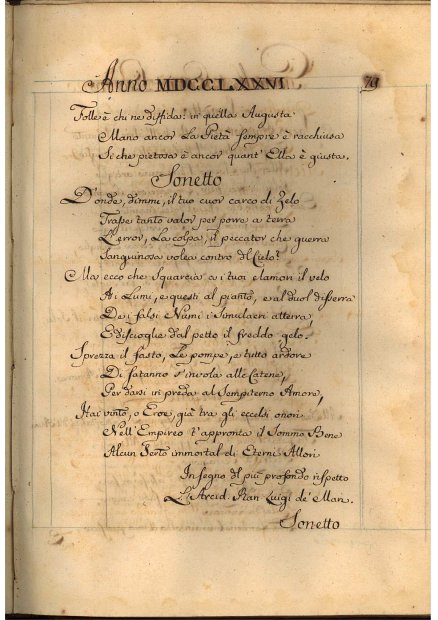 Anno MDCCLXXVI 79
Folle è chi ne diffida: in quella Augusta
Mano ancor La Pietà sempre è racchiusa
Se che pietosa è ancor quant' Ella è giusta.
Sonetto
Donde, dimmi, il tuo cuor carco di Zelo
Trasse tanto valor per porre a terra
L'error, La colpa, il peccator che guerra
Sanguinosa volea contro dl Cielo?
Ma ecco che Squarcia a i tuoi clamori il velo
Ai Lumi, e questi al pianto, e al duol disserra
De i falsi Numi i Simulacri atterra,
E discioglie dal petto il freddo gelo.
Sprezza il fasto, Le pompe, e tutto ardore
Di Satanno s'invola alle Catene,
Per darsi in preda al Sempiterno Amore,
Hai vinto, o Eroe, già tra gli eccelsi onori
Nell' Empireo t'appronta il Sommo Bene
Alcun Serto immortal di Eterni Allori
In segno dl più profondo rispetto
L'Arcid. Luigi de' Mari.
Sonetto